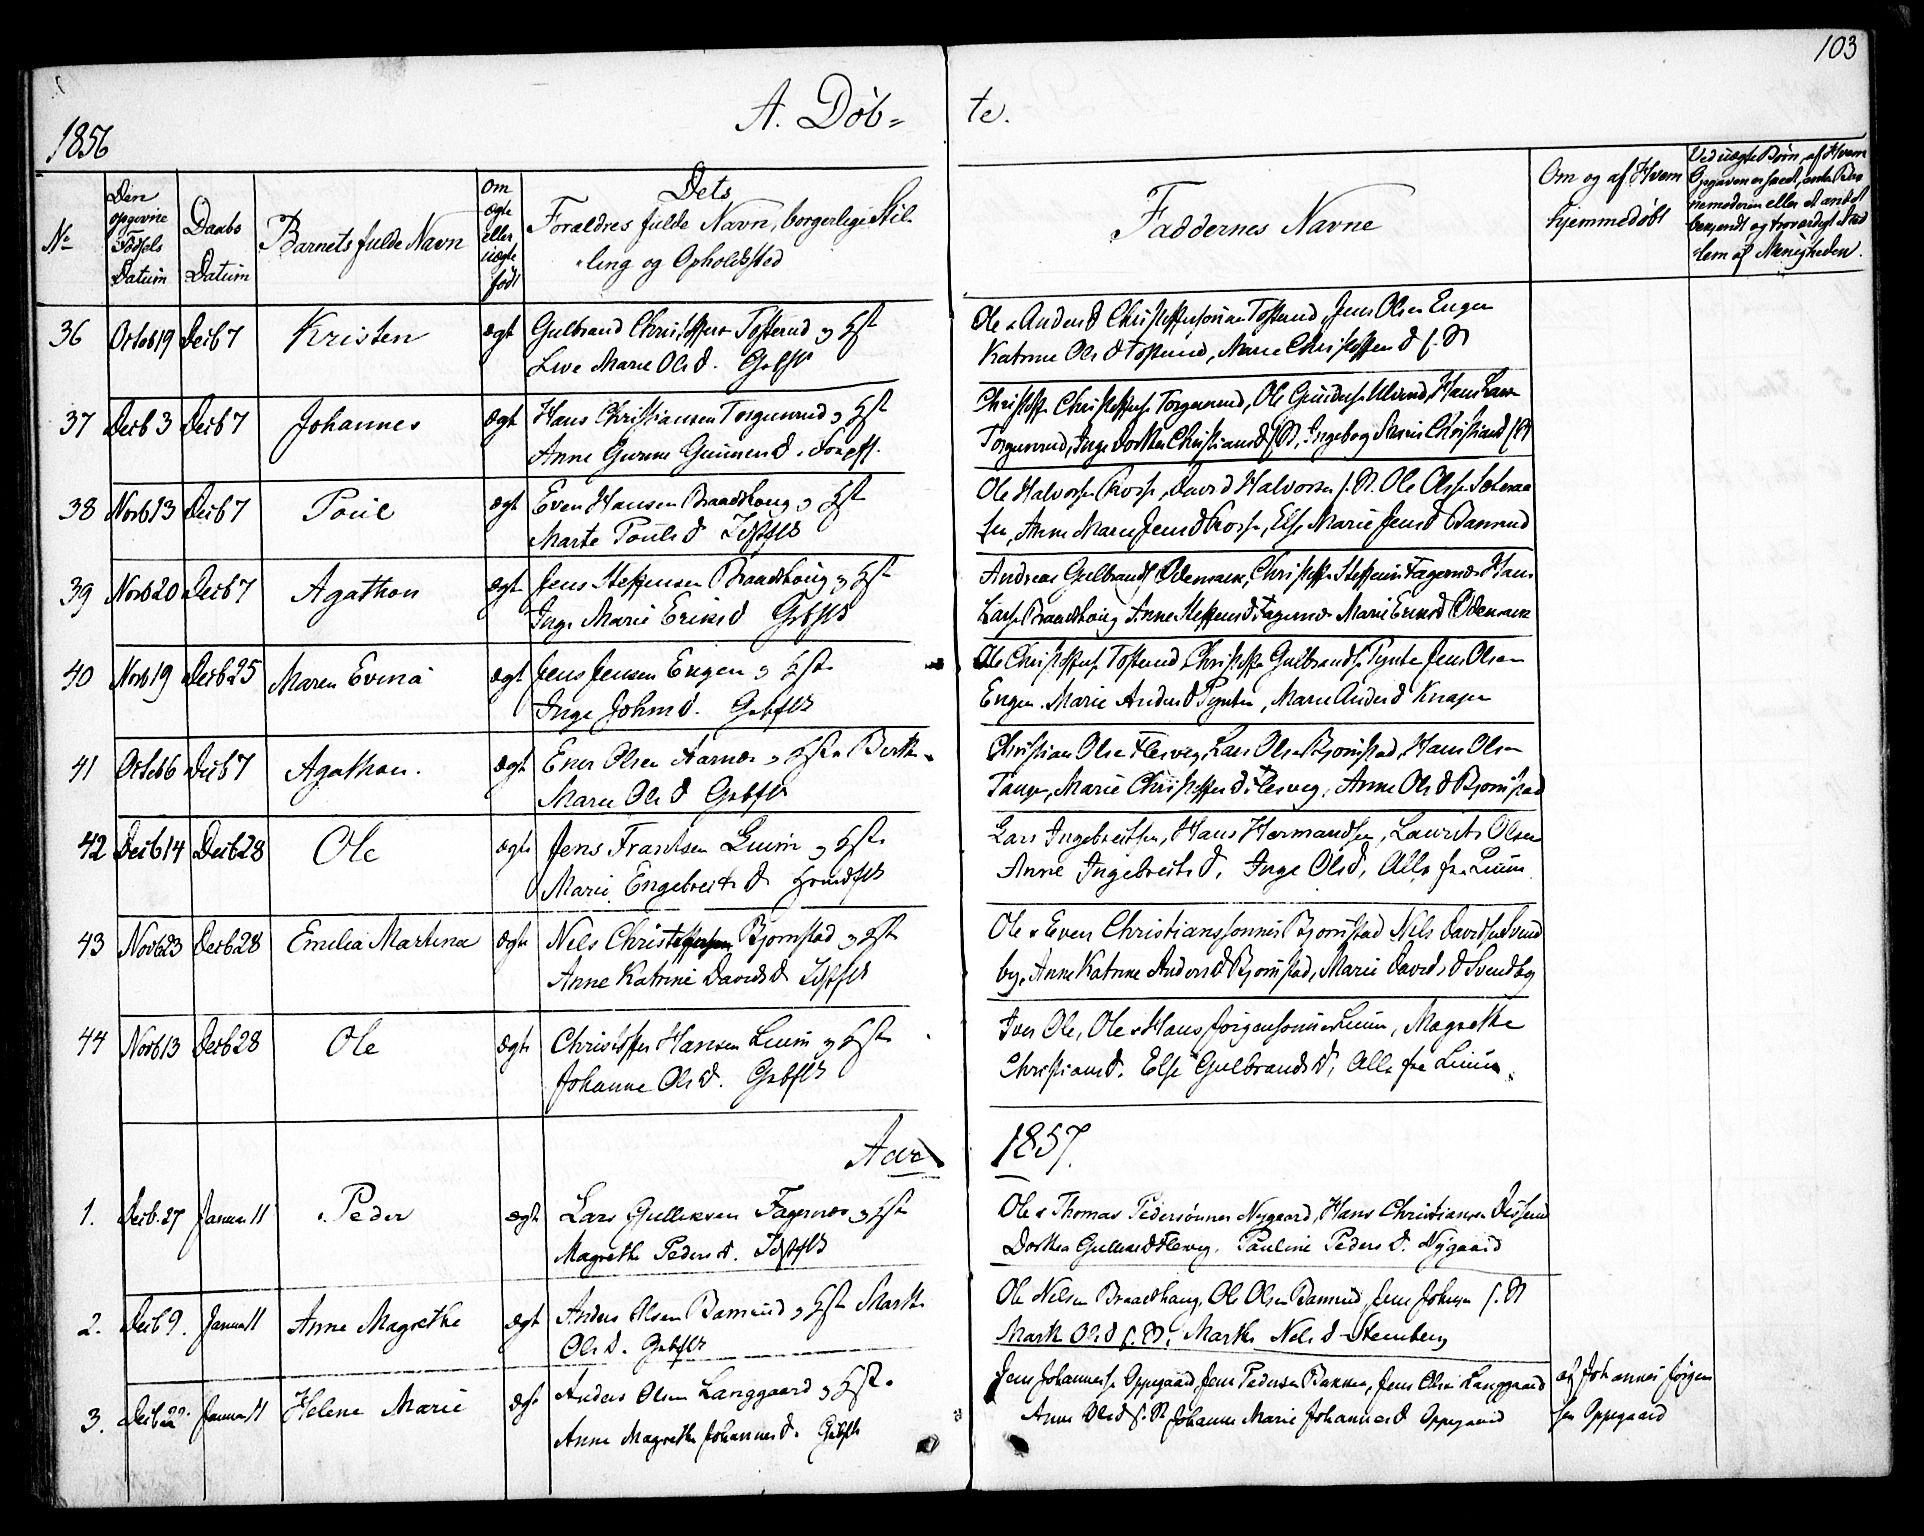 103
A. Døb= te.
1856
No
Den opgivne Fødsels Datum
Daabs Datum
Barnets fulde Navn
Om ægte eller uægte født
Dets Forældres fulde Navn, borgerlige Stilling og Opholdssted
Faddernes Navne
Om og af Hvem hjemmedøbt
Ved uægte Børn, af Hvem Opgaven er skeet, enten
eller et andet bekjendt og troværdigt Medlem af Menigheden.
36 Octob 19 Decb 7 Kristen ægt Gulbrand Christoffers Tosterud og Hst
Live Marie Ols D. Gbfls
Ole & Anders Christoffersønner Tosterud, Jens Olsen Engen
Katrine Ols D Tosterud, Marie Christoffers D f. St
37 Decb 3 Decb 7 Johannes ægt Hans Christiansen Torgunrud og Hst
Anne Gurine Gunners D.
Christoffer Christoffers. Torgunrud, Ole Hans Lars
Torgunrud, Inge Dorthea Christians D f St, Ingeborg Marie Christians D f St
38 Novb 13 Decb 7 Poul ægt Even Hansen Braadhoug og Hst
Marte Pouls D
Ole Halvorsen David Halvorsen f. St. Ole Olsen
Anne Marie Jens D Else Marie Jens D Bamrud
39 Novb 20 Decb 7 Agathon ægt Jens Steffensen Braadhoug og Hst
Inge Marie Eriks D Gbfls
Andreas Gulbrands Odemark, Christoffer Steffensen Fagernæs Hans
Lars. Braadhoug Anne Steffens D Fagernæs Marie Eriks D Odemark
40 Novb 19 Decb 25 Maren Evina ægt Jens Jensen Engen og Hst.
Inge Johns D. Gbfls
Ole Christoffers. Tosterud Christoffer Gulbrands. Pynten Jens Olsen
Engen. Marie Anders D Pynten, Maren Anders D Knapen
41 Octob 6 Decb 7 Agathon. ægt Ener Olsen Aarnæs og Hst Berthe
Marie Ols D Gbfls
Christian Olsen Flesveg, Lars Olsen Bjørnstad, Hans Olsen
Tangen, Marie Christoffers D Flesveg, Anne Ols D Bjørnstad
42 Decb 14 Decb 28 Ole ægte Jens Frantsen Luum og Hst.
Marie Engebreits D
Lars Ingebreitsen, Hans Hermandsen, Laurits Olsen
Anne Ingebreits D, Inge Ols D, Alle fra Luum
43 Novb 23 Decb 28 Emilia Martina ægte Nels Christoffersen Bjørnstad og Hst.
Anne Katrine Davids D
Ole & Even Christianssønner Bjørnstad Nils Davidsen Svend
by, Anne Katrine Anders D Bjørnstad, Marie Davids D Svendby
44 Novb 13 Decb 28 Ole ægte Christoffer Hansen Luum og Hst.
Johanne Ols D. Gbfls
Iver Ole, Ole & Hans Jørgensønner Luum, Magrethe
Christians D. Else Gulbrands D, Alle fra Luum.
Aar 1857.
1. Decb. 27 Januar 11 Peder ægte Lars Gulliksen Fagernæs og Hst
Magrethe Peders D.
Ole & Thomas Pedersønner Nygaard, Hans Christiansen
Dorthea Flesveg. Pauline Peders D. Nygaard
2. Decb 9. Januar 11 Anne Magrethe ægt Anders Olsen Bamrud og Hst. Marthe
Ols D. Gbfls
Ole Nelsen Braadhaug, Ole Olsen Bamrud Jens Johnsen f. St
Marthe Ols D f. St. Marthe Nels D Stemberg
3. Decb 22. Januar 11 Helene Marie ægte Anders Olsen Langgaard og Hst.
Anne Magrethe Johannes D. Gbfls
Jens Johannesen Oppegaard Jens Pedersen Bakken, Jens Olsen Langgaard
Anne Ols D f. St Johanne Marie Johannes D Oppegaard
af Johannes Jørgen
sen Oppegaard